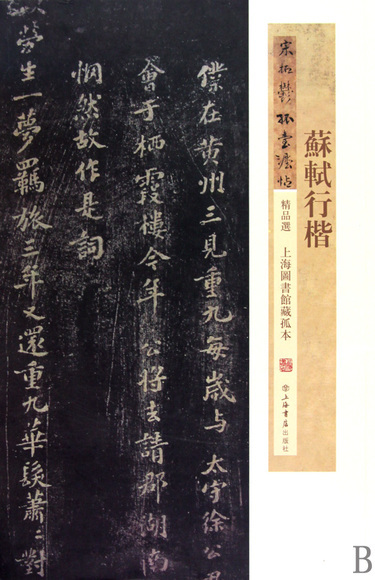 僕在黄州三見重九每歳与太守徐公君
會于栖霞樓今年公将去請郡湖南
惘然故作是詞
勞生一夢羈旅三年又還重九華髮蕭〻對
宋拓鬱孤臺法帖
精品選
上海圖書館藏孤本
蘇軾行楷
上海書店出版社
B